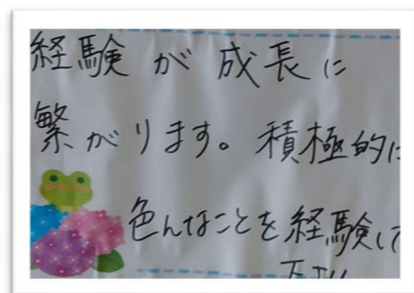 経験が成長に
繋がります。積極的に
色んなことを経験して
下さい